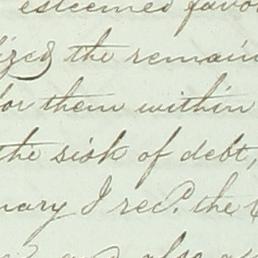 esteemed favo
ized the remain
for them within
the risk of debt,
nary I recd. the
also